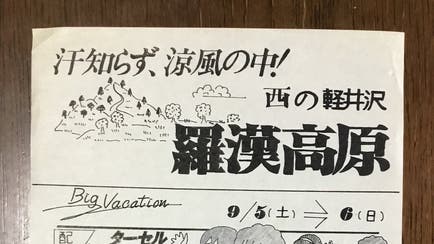 汗知らず、涼風の中!
西の軽井沢
羅漢高原
Big Vacation
9/5(土)⇒6(日)
配
ターセル